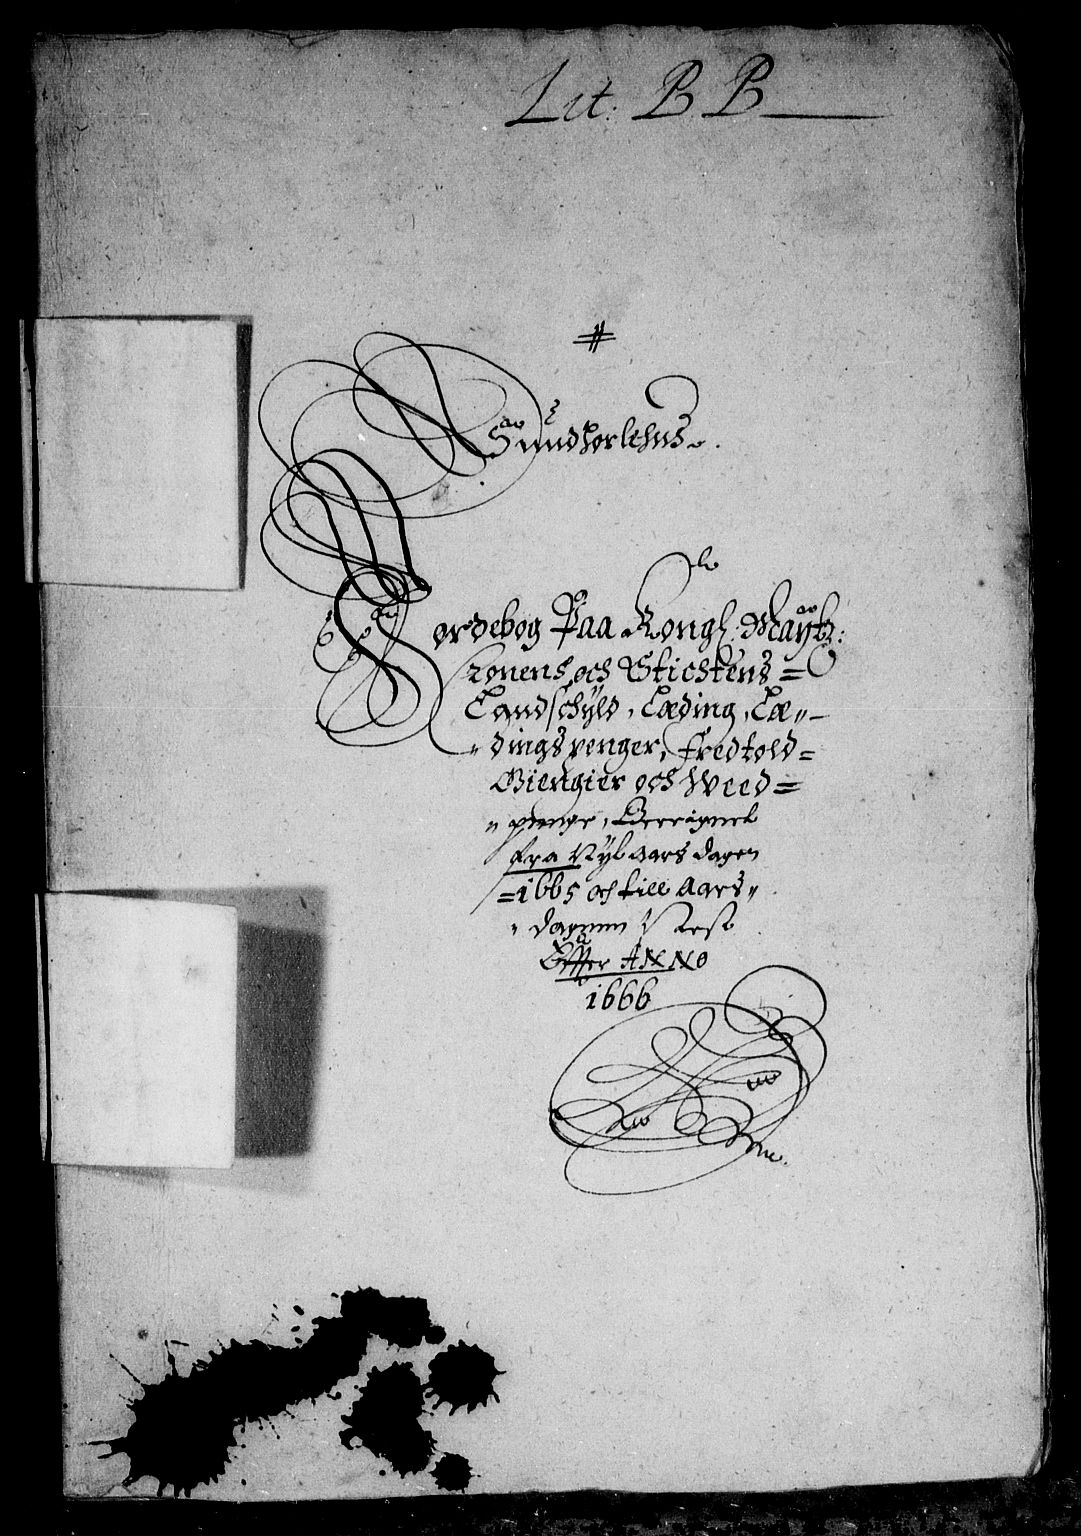 Lit: B B
Sundhorlehns.
Jordebog Paa Kongl: Maÿtz:
Cronens och Stichtens=
Landschÿld, Læding, Læ„-
„dingspenger, Fredtold=
Giengier och Weed=
„penge, Beregnet
fra Nyt aars dagen
=1665 och till Aars„
„dagenn Nest
Effter ANNO
1666